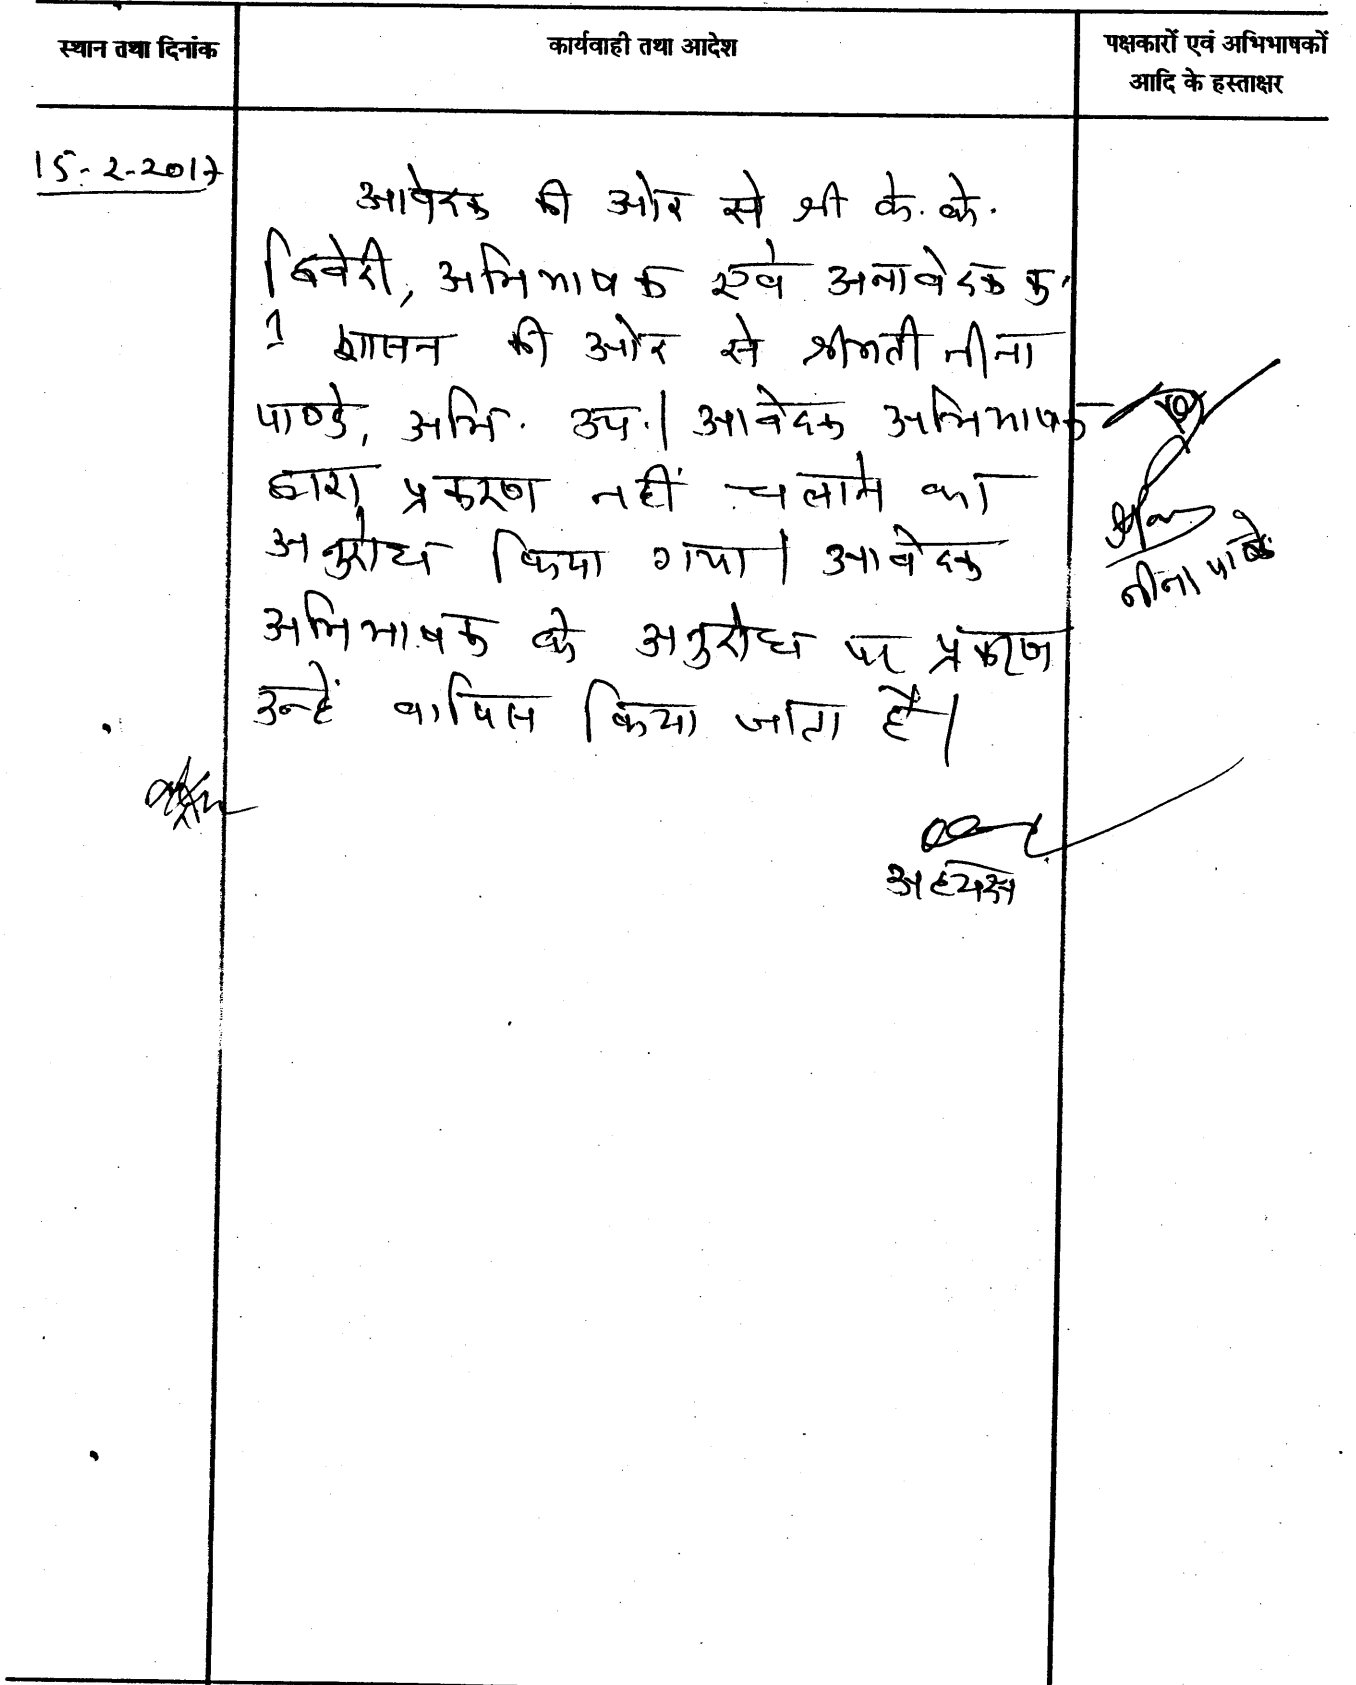 स्थान तथा दिनांक
कार्यवाही तथा आदेश
पक्षकारों एवं अभिभाषकों
आदि के हस्ताक्षर
15-2-2017
आवेदक की ओर से श्री के. के.
द्विवेदी, अभिभाषक एवं अनावेदक क्र.
1 शासन की ओर से श्रीमती नीना
पाण्डे, अभि. उप.। आवेदक अभिभाषक
द्वारा प्रकरण नहीं चलाने का
अनुरोध किया गया। आवेदक
अभिभाषक के अनुरोध पर प्रकरण
उन्हें वापिस किया जाता है।
नीना पाण्डे
अध्यक्ष